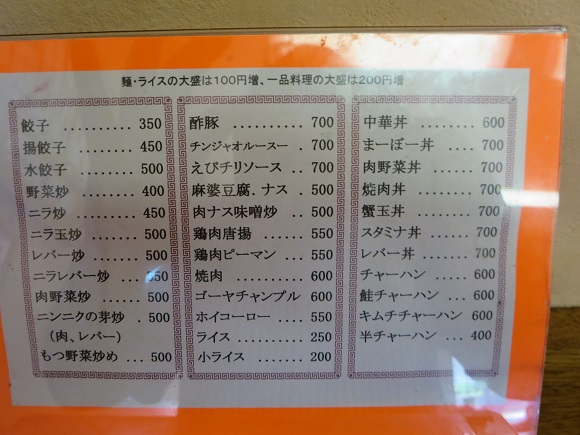 麺・ライスの大盛は100円増、一品料理の大盛は200円増
餃子 .......... 350
揚餃子 ........ 450
水餃子 ........ 500
野菜炒 ........ 400
ニラ炒 ........ 450
ニラ玉炒 ...... 500
レバー炒 ...... 500
ニラレバー炒 ... 550
肉野菜炒 ...... 500
ニンニクの芽炒 . 500
(肉、レバー)
もつ野菜炒め ... 500
酢豚 .......... 700
チンジャオルースー . 700
えびチリソース .. 700
麻婆豆腐.ナス . 500
肉ナス味噌炒 .. 500
鶏肉唐揚 ...... 550
鶏肉ピーマン ... 550
焼肉 .......... 600
ゴーヤチャンプル 600
ホイコーロー ... 550
ライス ........ 250
小ライス ...... 200
中華丼 ........ 600
まーぼー丼 .... 700
肉野菜丼 ...... 700
焼肉丼 ........ 700
蟹玉丼 ........ 700
スタミナ丼 .... 700
レバー丼 ...... 700
チャーハン .... 600
鮭チャーハン ... 600
キムチチャーハン 600
半チャーハン ... 400